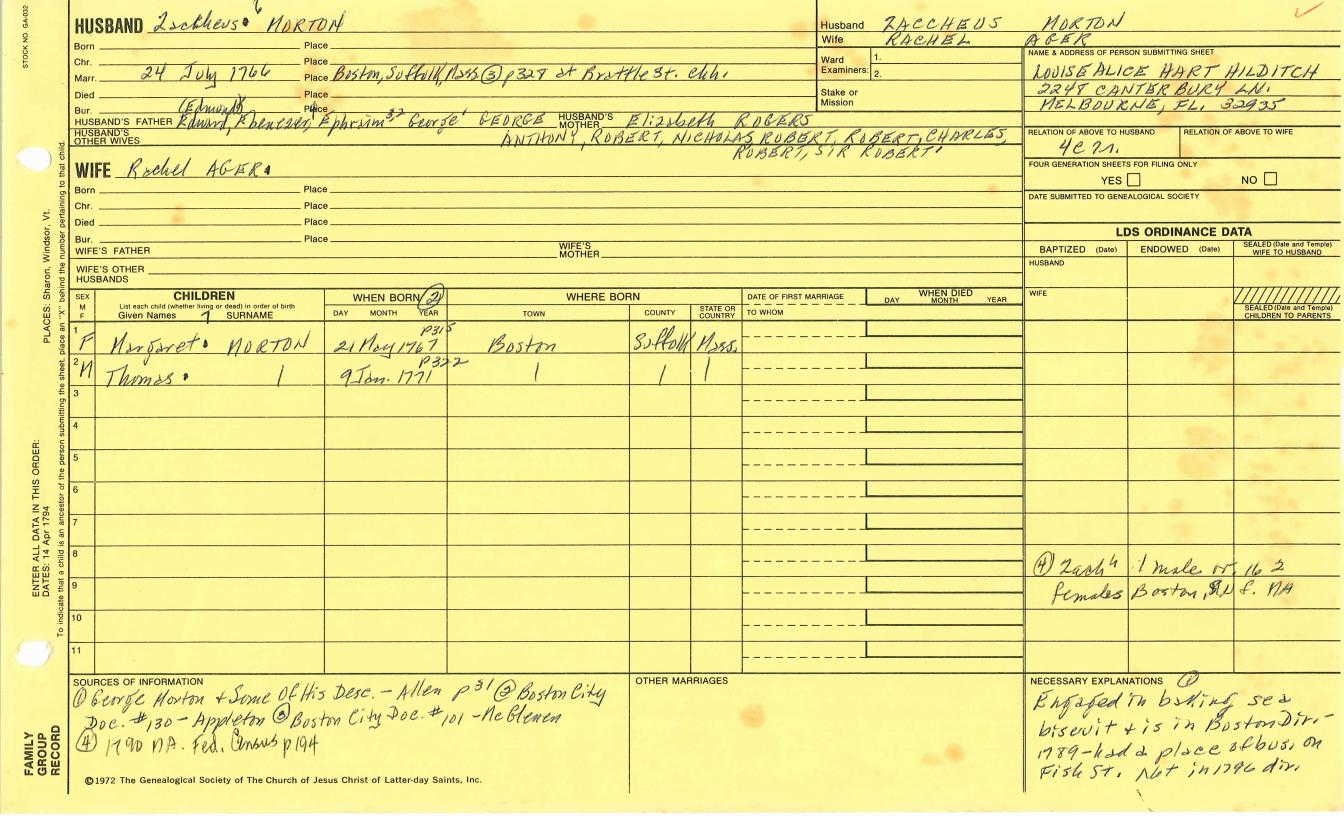 STOCK NO. GA-032
HUSBAND Zaccheus 6 MORTON
Born Place
Chr. Place
Marr. 24 July 1766 Place Boston, Suffolk, Mass ③ p328 at Brattle St. chh.
Died Place
Bur. Place
(Edmund)
HUSBAND'S FATHER Edward, Ebenezer, Ephraim 3,2 George 1 GEORGE HUSBAND'S MOTHER Elizabeth ROGERS
HUSBAND'S OTHER WIVES ANTHONY, ROBERT, NICHOLAS, ROBERT, ROBERT, CHARLES,
ROBERT, SIR ROBERT
WIFE Rachel AGER
Born Place
Chr. Place
Died Place
Bur. Place
WIFE'S FATHER WIFE'S MOTHER
WIFE'S OTHER HUSBANDS
Husband ZACCHEUS MORTON
Wife RACHEL AGER
Ward 1.
Examiners: 2.
Stake or
Mission
NAME & ADDRESS OF PERSON SUBMITTING SHEET
LOUISE ALICE HART HILDITCH
2248 CANTERBURY LN.
MELBOURNE, FL. 32935
RELATION OF ABOVE TO HUSBAND RELATION OF ABOVE TO WIFE
FOUR GENERATION SHEETS FOR FILING ONLY
YES NO
DATE SUBMITTED TO GENEALOGICAL SOCIETY
LDS ORDINANCE DATA
BAPTIZED (Date) ENDOWED (Date) SEALED (Date and Temple) WIFE TO HUSBAND
HUSBAND
WIFE
SEALED (Date and Temple) CHILDREN TO PARENTS
SEX M F
CHILDREN
List each child (whether living or dead) in order of birth
Given Names 7 SURNAME
WHEN BORN ②
DAY MONTH YEAR
WHERE BORN
TOWN COUNTY STATE OR COUNTRY
DATE OF FIRST MARRIAGE
TO WHOM
WHEN DIED
DAY MONTH YEAR
1 F Margaret MORTON 21 May 1767 p315 Boston Suffolk Mass.
2 M Thomas 9 Jan. 1771 p322
3
4
5
6
7
8
9
10
11
④ Zach 1 male 16 2
females Boston,
SOURCES OF INFORMATION
① George Morton & Some Of His Desc. - Allen p 31 ② Boston City
Doc. #130 - Appleton ③ Boston City Doc. #101 - McGlenen
④ 1790 MA. Fed. Census p 194
OTHER MARRIAGES
NECESSARY EXPLANATIONS ①
Engaged in baking sea
biscuit & is in Boston Dir. -
1789 - had a place of bus. on
Fish St. Not in 1796 dir.
©1972 The Genealogical Society of The Church of Jesus Christ of Latter-day Saints, Inc.
FAMILY
GROUP
RECORD
ENTER ALL DATA IN THIS ORDER:
DATES: 14 Apr 1794
PLACES: Sharon, Windsor, Vt.
To indicate that a child is an ancestor of the person submitting the sheet, place an "X" behind the number pertaining to that child.